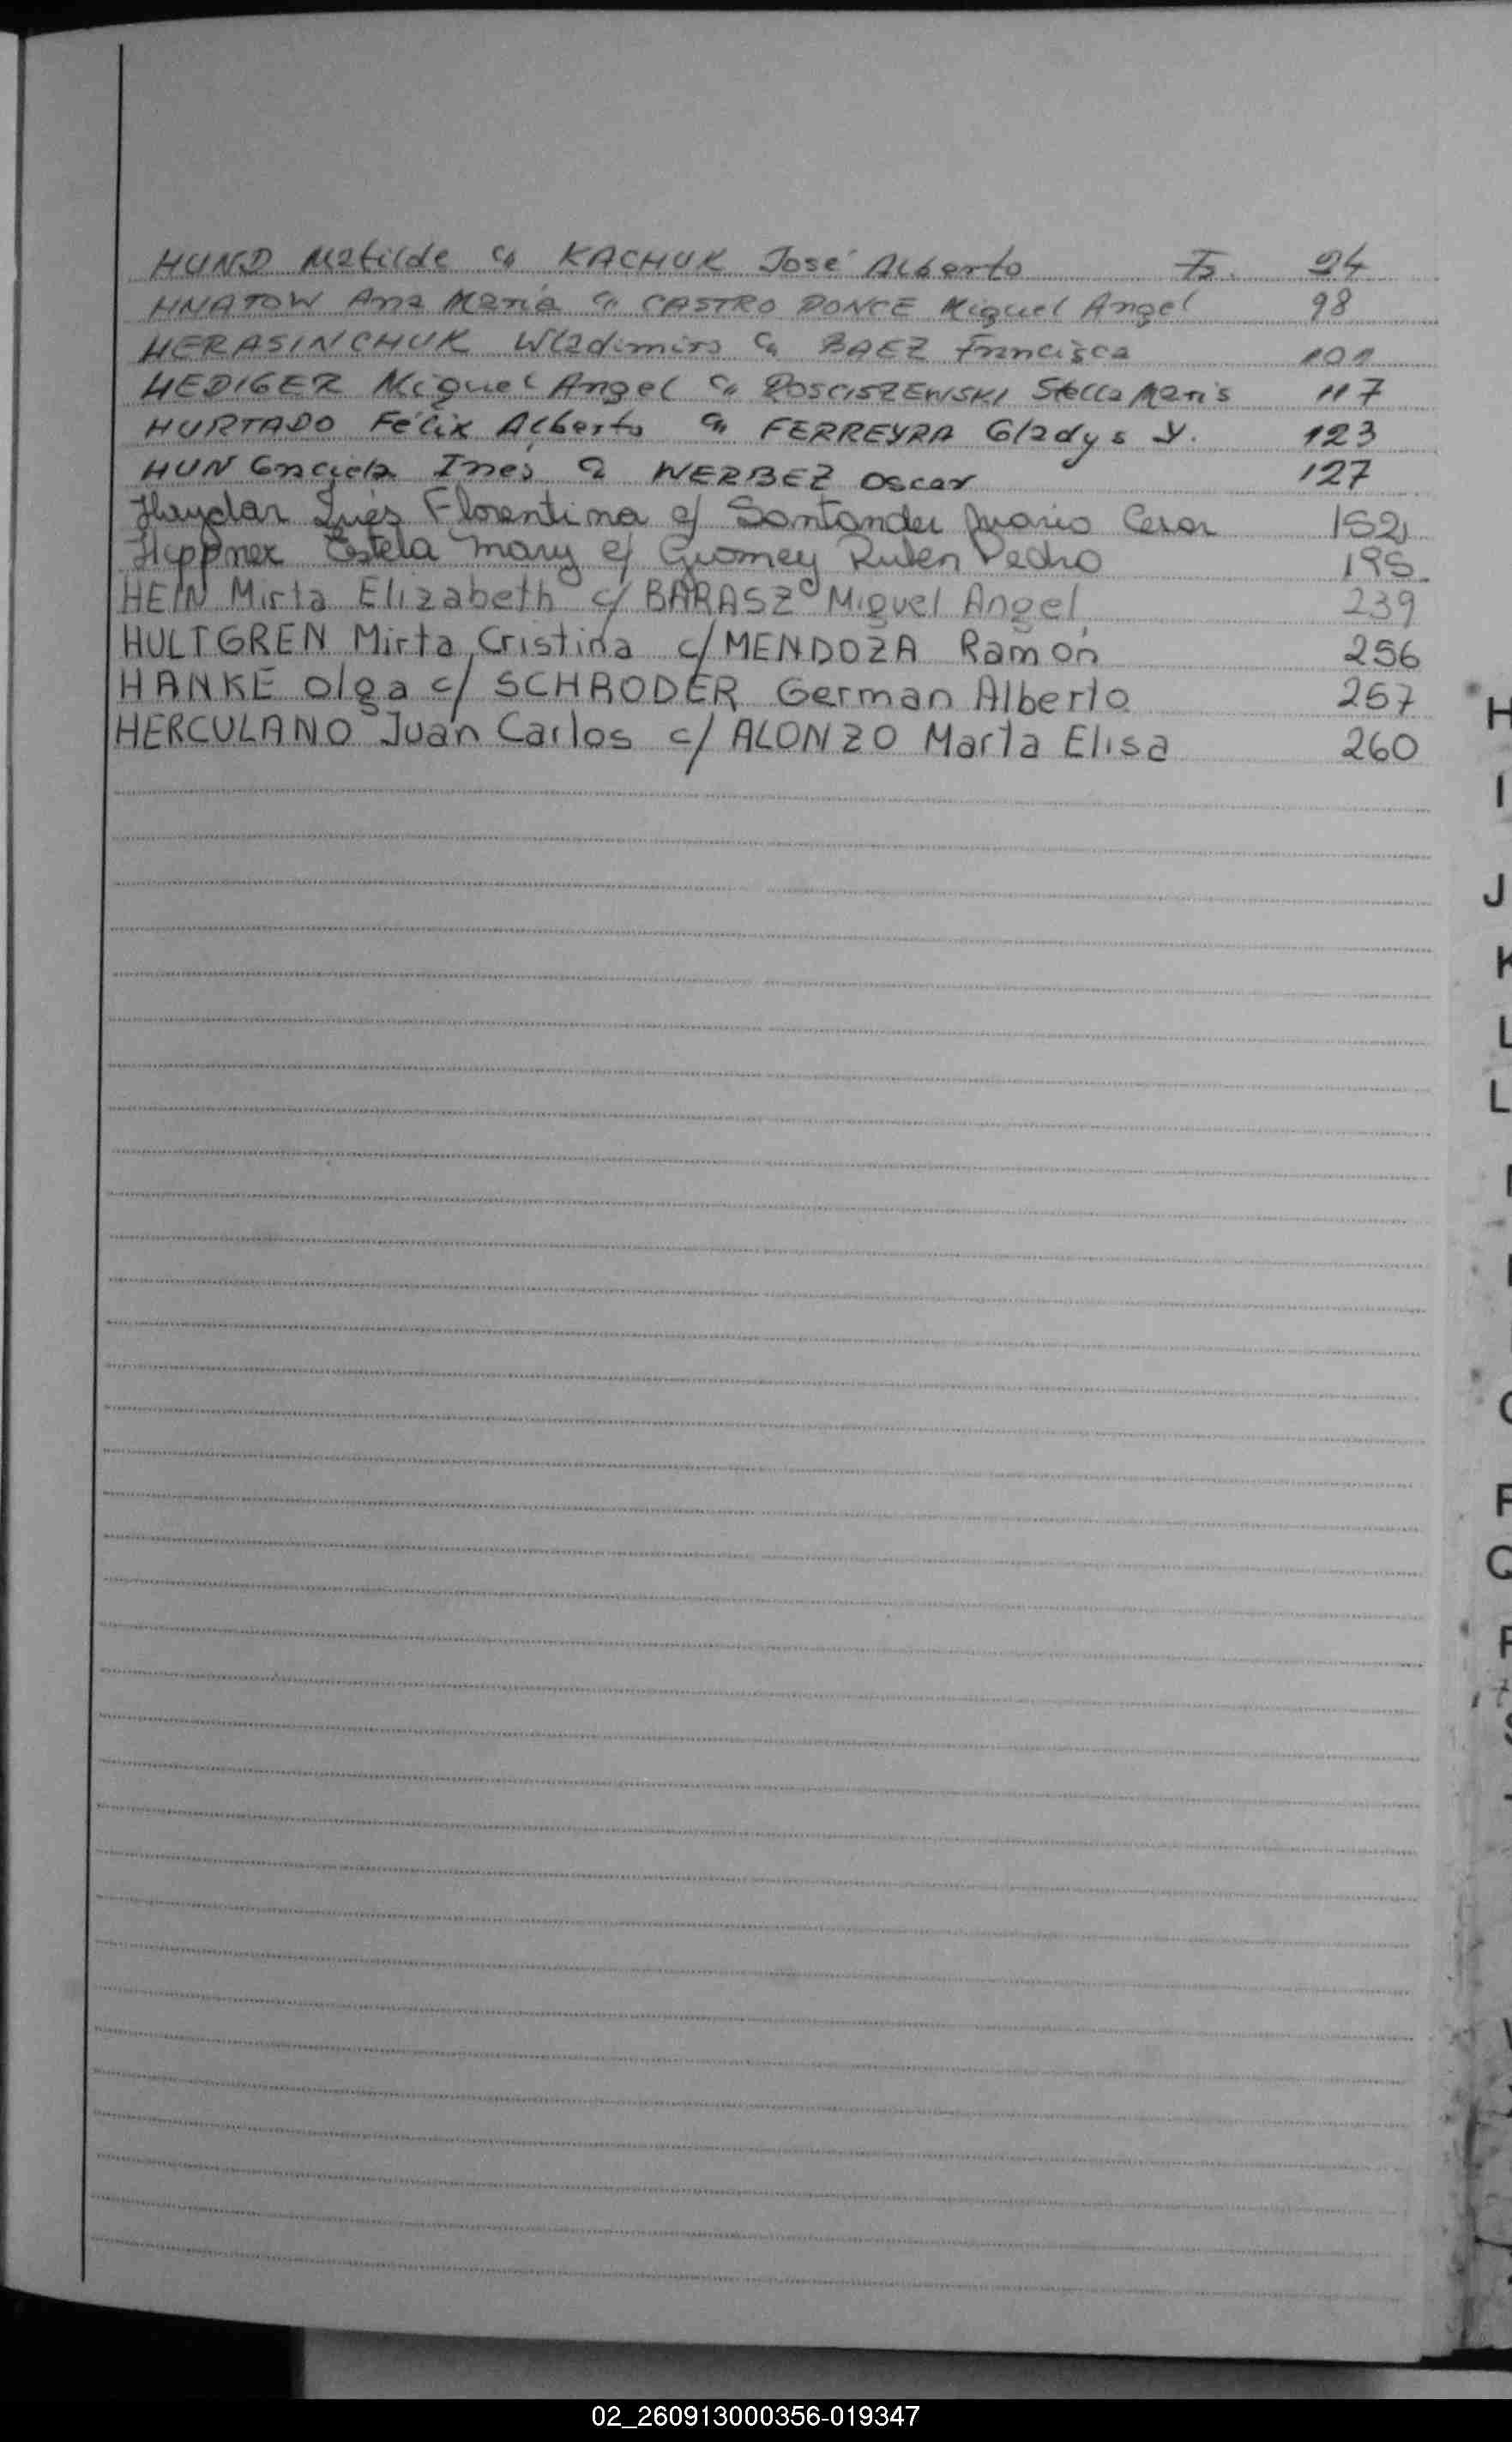 HUND Matilde c/ KACHUK José Alberto Fs. 94
HNATOW Ana María c/ CASTRO PONCE Miguel Angel 98
HERASINCHUK Wladimiro c/ BAEZ Francisca 101
HEDIGER Miguel Angel c/ ROSCISZEWSKI Stella Maris 117
HURTADO Félix Alberto c/ FERREYRA Gladys Y. 123
HUN Graciela Inés c/ WERBEZ Oscar 127
Haydar Inés Florentina c/ Santander Mario Cesar 152
Heppner Estela Mary c/ Ruben Pedro 195
HEIN Mirta Elizabeth c/ BARASZ Miguel Angel 239
HULTGREN Mirta Cristina c/ MENDOZA Ramón 256
HANKE Olga c/ SCHRODER German Alberto 257
HERCULANO Juan Carlos c/ ALONZO Marta Elisa 260
H
I
J
K
L
L
Q
02_260913000356-019347